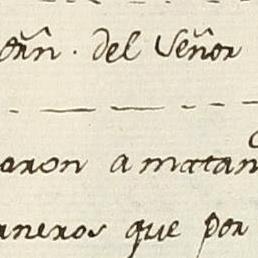 orñ. del Señor
aron a matan
rneros que por